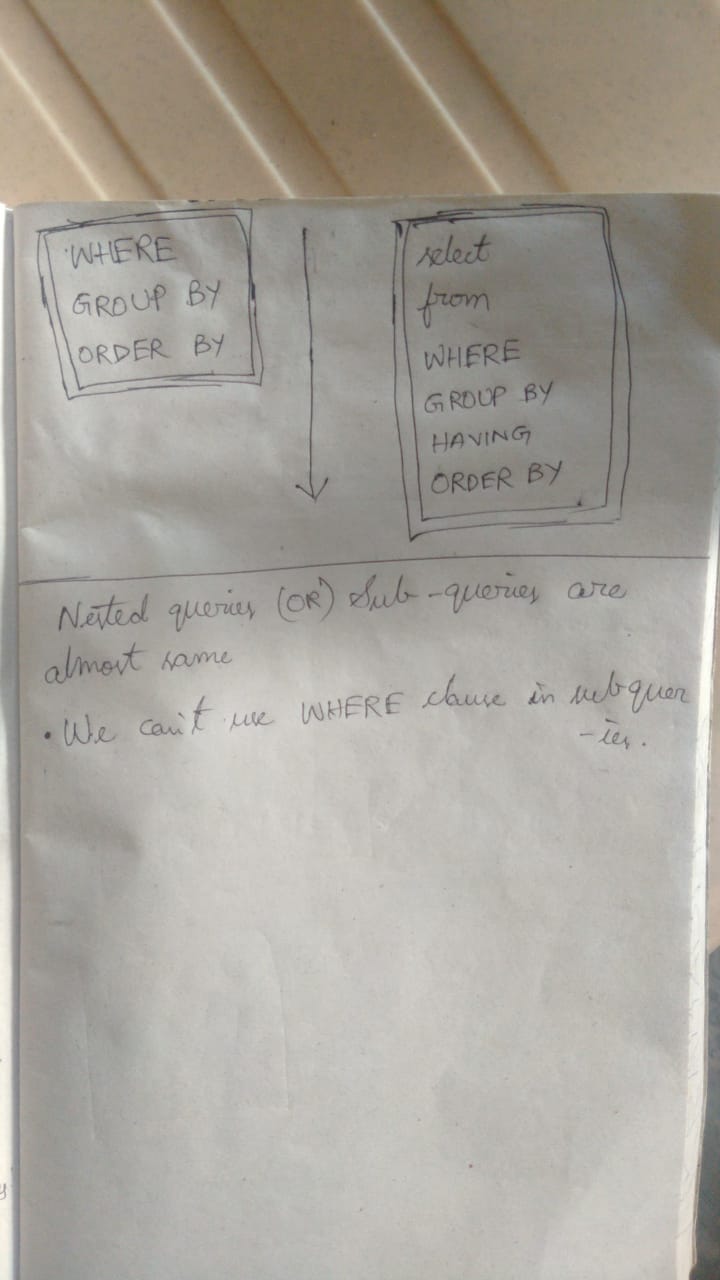 WHERE
GROUP BY
ORDER BY
select
from
WHERE
GROUP BY
HAVING
ORDER BY
Nested queries (OR) Sub-queries are
almost same
• We can't use WHERE clause in subquer
-ies.